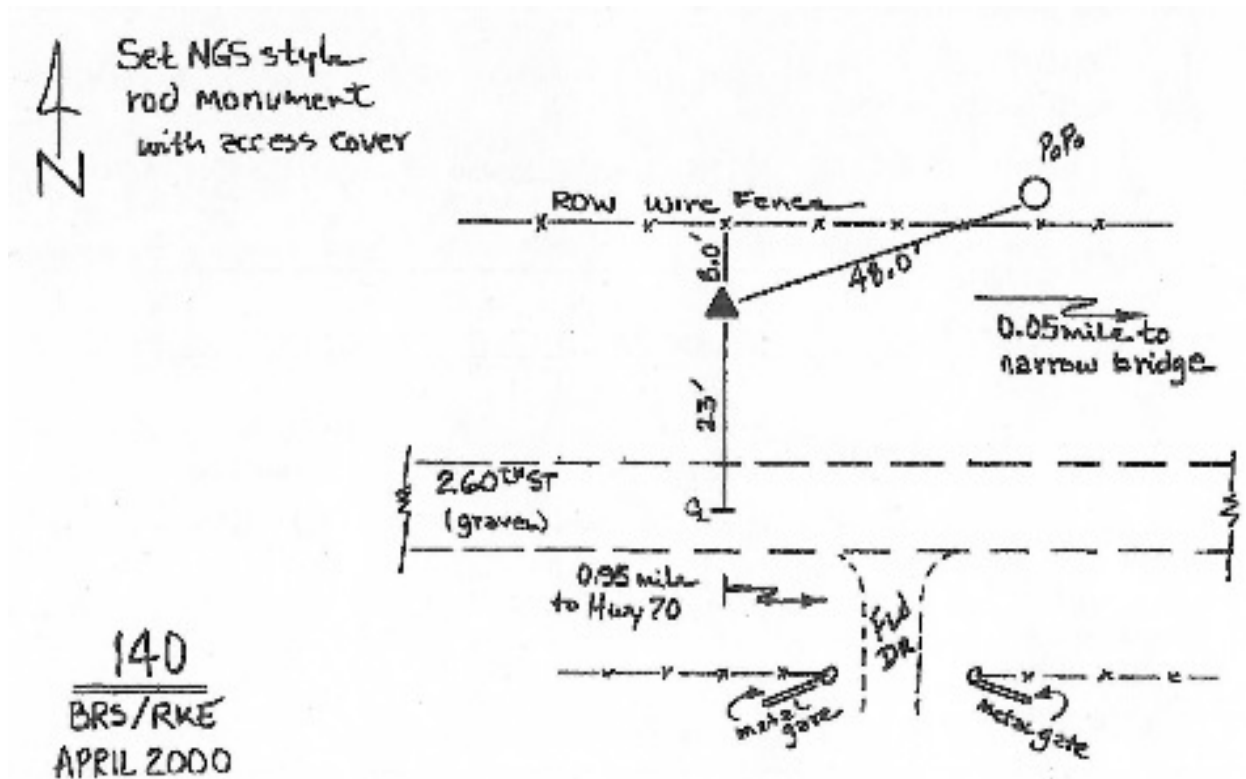 Set NGS style
rod monument
with access cover
N
PoPo
ROW Wire Fence
8.0'
48.0'
0.05 mile to
narrow bridge
23'
260TH ST
(gravel)
CL
0.95 mile
to Hwy 70
Fld
DR
metal
gate
metal gate
140
BRS/RKE
APRIL 2000